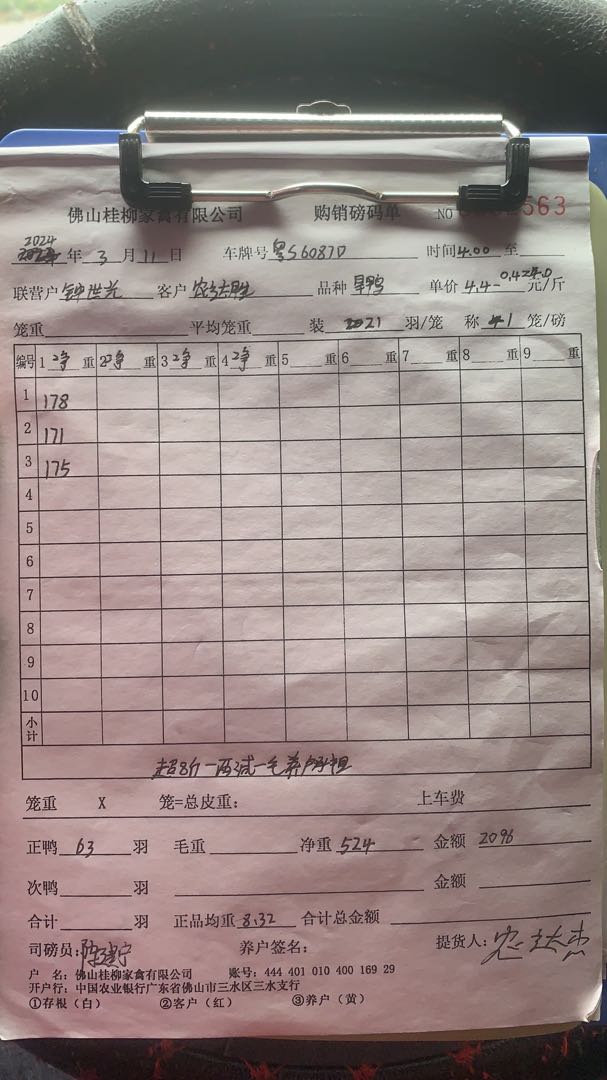 佛山桂柳家禽有限公司 购销磅码单 NO 563
2024年 3 月 11 日 车牌号 粤S6087D 时间 4.00 至
联营户 钟世光 客户 品种 旱鸭 单价 4.4-0.4=4.0 元/斤
笼重 平均笼重 装 21 羽/笼 称 1 笼/磅
编号 1 净 重 2 净 重 3 净 重 4 净 重 5 重 6 重 7 重 8 重 9 重
1 178
2 171
3 175
4
5
6
7
8
9
10
小计
超8斤一两减一毛养户承担
笼重 X 笼=总皮重: 上车费
正鸭 63 羽 毛重 净重 524 金额 2096
次鸭 羽 金额
合计 羽 正品均重 8.32 合计总金额
司磅员: 养户签名: 提货人:
户 名: 佛山桂柳家禽有限公司 账号: 444 401 010 400 169 29
开户行: 中国农业银行广东省佛山市三水区三水支行
①存根（白） ②客户（红） ③养户（黄）